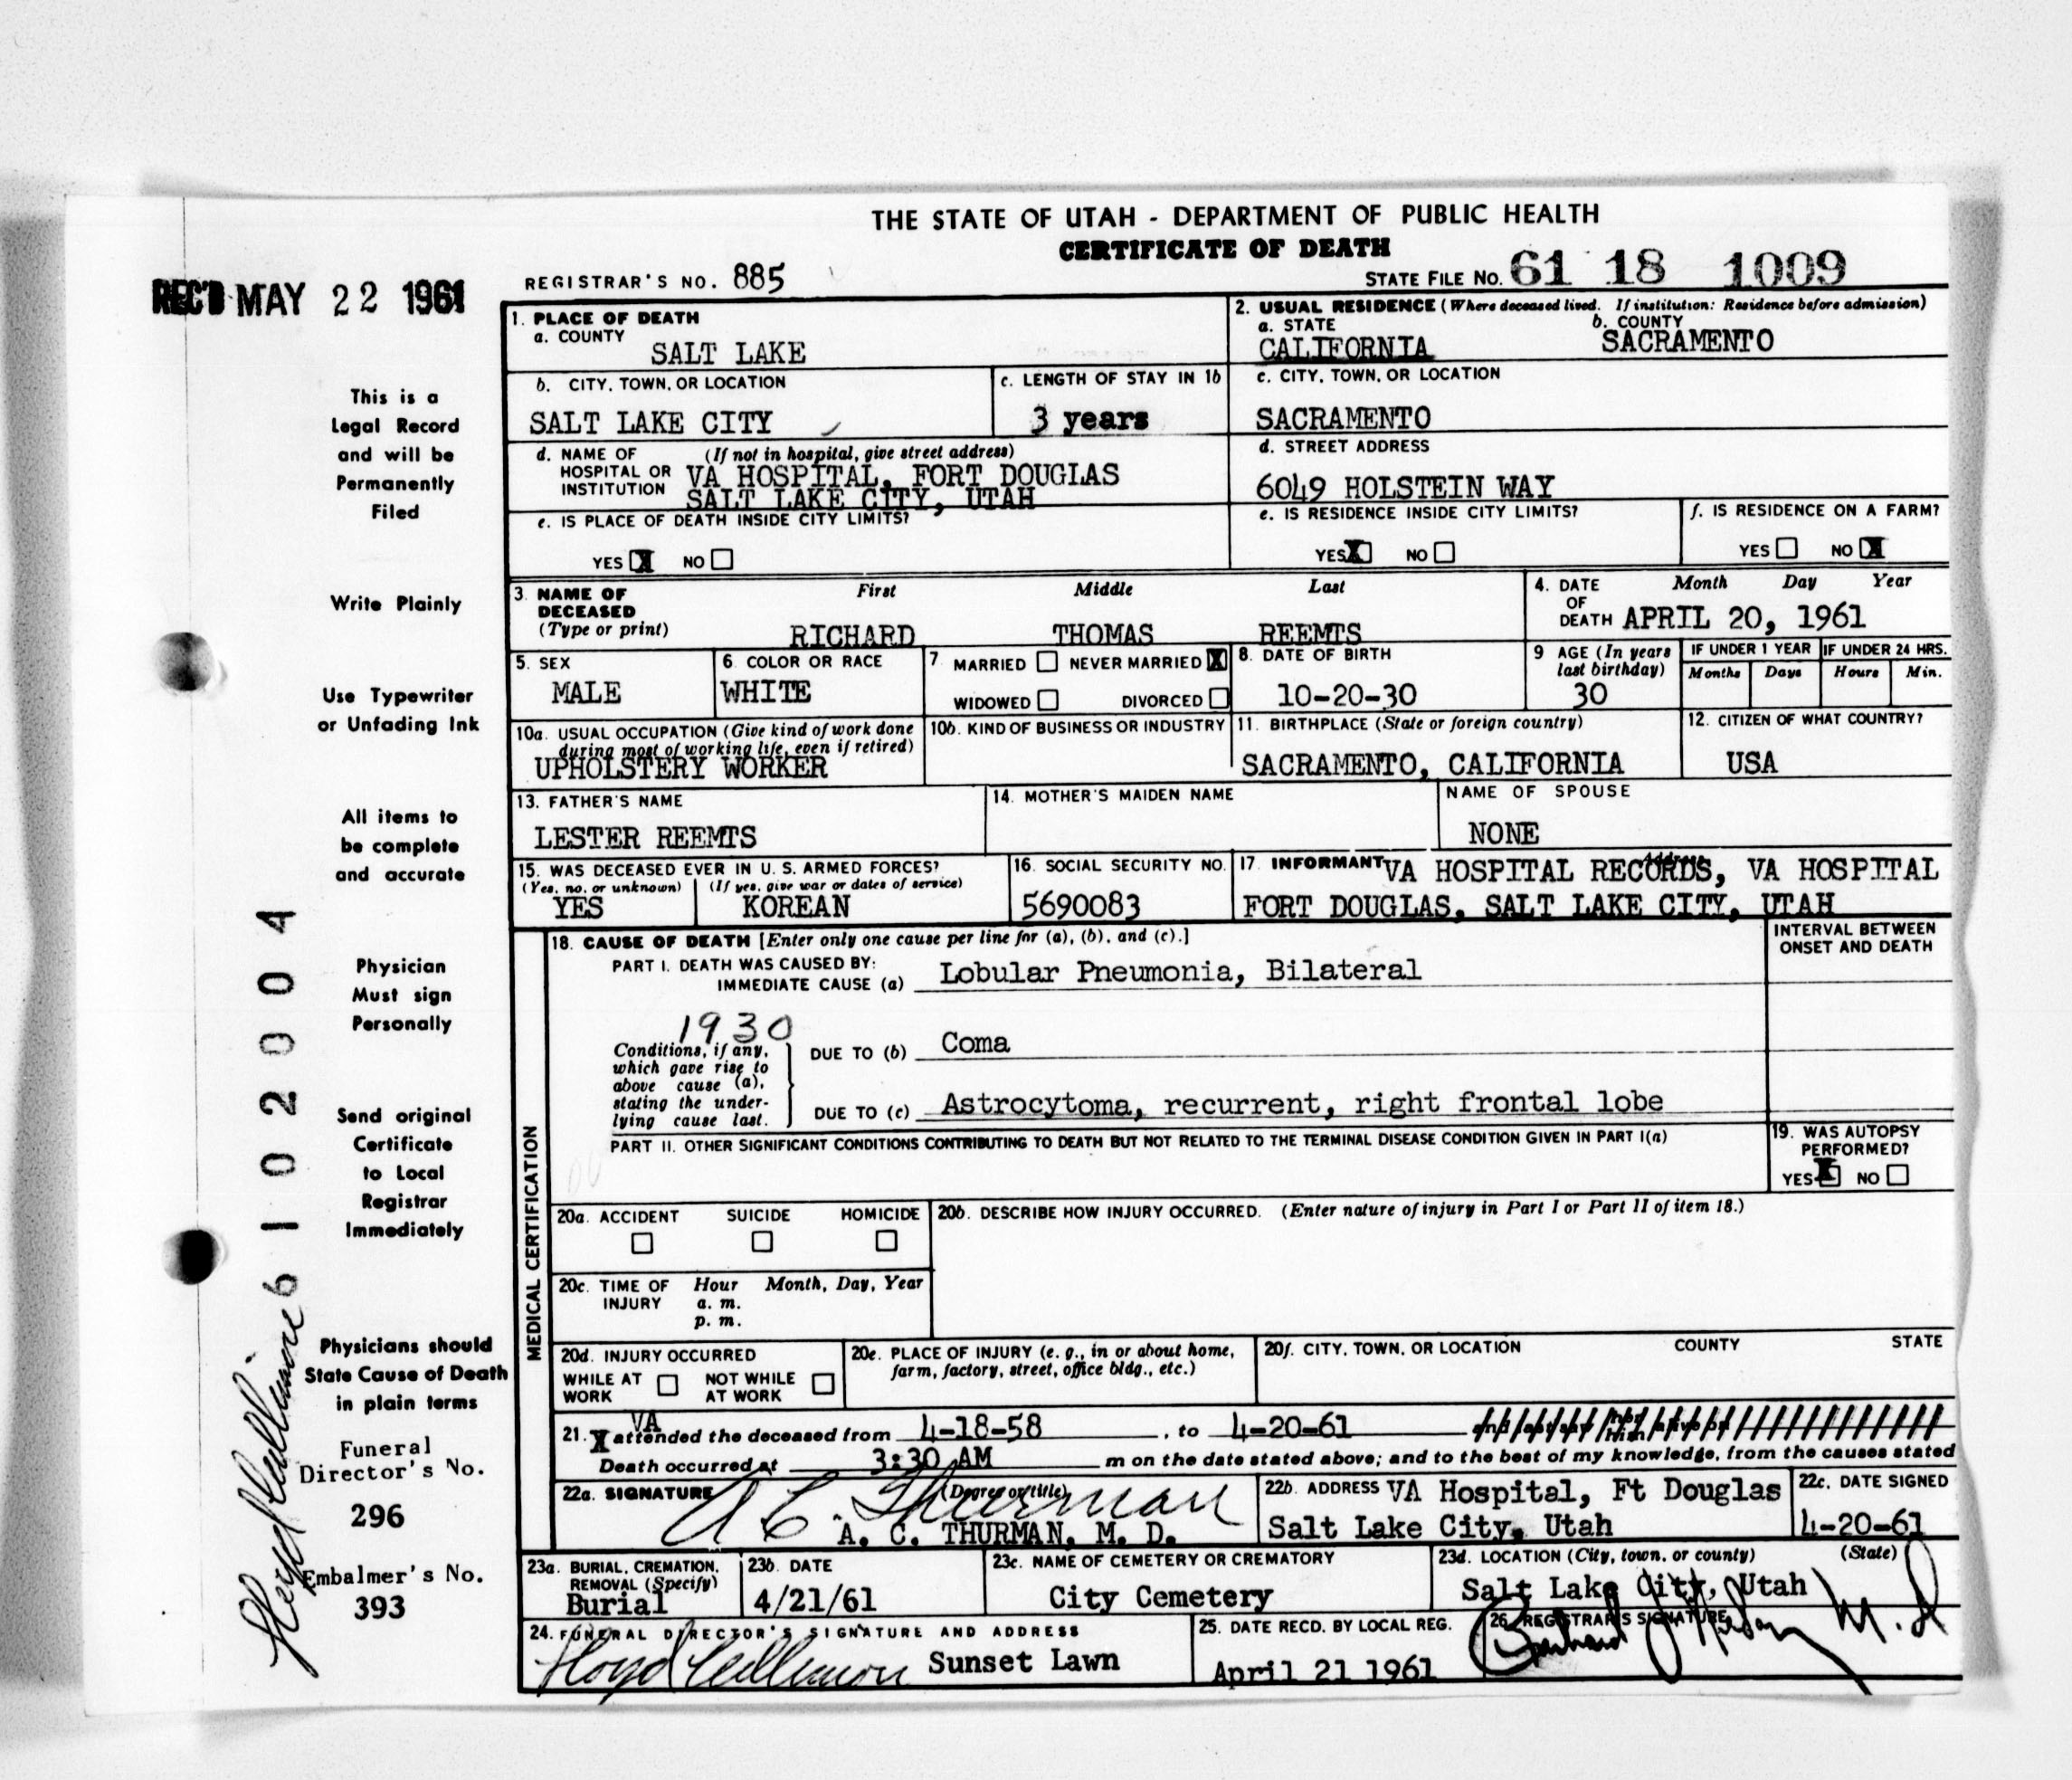 THE STATE OF UTAH - DEPARTMENT OF PUBLIC HEALTH
CERTIFICATE OF DEATH
REC'D MAY 22 1961
REGISTRAR'S NO. 885
STATE FILE NO. 61 18 1009
This is a
Legal Record
and will be
Permanently
Filed
Write Plainly
Use Typewriter
or Unfading Ink
All items to
be complete
and accurate
Physician
Must sign
Personally
Send original
Certificate
to Local
Registrar
Immediately
Physicians should
State Cause of Death
in plain terms
Funeral
Director's No.
296
Embalmer's No.
393
61 02004
1. PLACE OF DEATH
a. COUNTY
SALT LAKE
2. USUAL RESIDENCE (Where deceased lived. If institution: Residence before admission)
a. STATE
CALIFORNIA
b. COUNTY
SACRAMENTO
b. CITY, TOWN, OR LOCATION
SALT LAKE CITY
c. LENGTH OF STAY IN 1b
3 years
c. CITY, TOWN, OR LOCATION
SACRAMENTO
d. NAME OF (If not in hospital, give street address)
HOSPITAL OR VA HOSPITAL, FORT DOUGLAS
INSTITUTION SALT LAKE CITY, UTAH
d. STREET ADDRESS
6049 HOLSTEIN WAY
e. IS PLACE OF DEATH INSIDE CITY LIMITS?
YES X NO
e. IS RESIDENCE INSIDE CITY LIMITS?
YES X NO
f. IS RESIDENCE ON A FARM?
YES NO X
3. NAME OF First Middle Last
DECEASED
(Type or print) RICHARD THOMAS REEMTS
4. DATE Month Day Year
OF
DEATH APRIL 20, 1961
5. SEX
MALE
6. COLOR OR RACE
WHITE
7 MARRIED NEVER MARRIED X
WIDOWED DIVORCED
8. DATE OF BIRTH
10-20-30
9 AGE (In years
last birthday)
30
IF UNDER 1 YEAR IF UNDER 24 HRS.
Months Days Hours Min.
10a. USUAL OCCUPATION (Give kind of work done
during most of working life, even if retired)
UPHOLSTERY WORKER
10b. KIND OF BUSINESS OR INDUSTRY
11. BIRTHPLACE (State or foreign country)
SACRAMENTO, CALIFORNIA
12. CITIZEN OF WHAT COUNTRY?
USA
13. FATHER'S NAME
LESTER REEMTS
14. MOTHER'S MAIDEN NAME
NAME OF SPOUSE
NONE
15. WAS DECEASED EVER IN U. S. ARMED FORCES?
(Yes, no, or unknown) (If yes, give war or dates of service)
YES KOREAN
16. SOCIAL SECURITY NO.
5690083
17. INFORMANT Address
VA HOSPITAL RECORDS, VA HOSPITAL
FORT DOUGLAS, SALT LAKE CITY, UTAH
MEDICAL CERTIFICATION
18. CAUSE OF DEATH [Enter only one cause per line for (a), (b), and (c).]
INTERVAL BETWEEN
ONSET AND DEATH
PART I. DEATH WAS CAUSED BY:
IMMEDIATE CAUSE (a) Lobular Pneumonia, Bilateral
1930
Conditions, if any,
which gave rise to
above cause (a),
stating the under-
lying cause last.
DUE TO (b) Coma
DUE TO (c) Astrocytoma, recurrent, right frontal lobe
PART II. OTHER SIGNIFICANT CONDITIONS CONTRIBUTING TO DEATH BUT NOT RELATED TO THE TERMINAL DISEASE CONDITION GIVEN IN PART I(a)
19. WAS AUTOPSY
PERFORMED?
YES X NO
20a. ACCIDENT SUICIDE HOMICIDE
20b. DESCRIBE HOW INJURY OCCURRED. (Enter nature of injury in Part I or Part II of item 18.)
20c. TIME OF Hour Month, Day, Year
INJURY a. m.
p. m.
20d. INJURY OCCURRED
WHILE AT NOT WHILE
WORK AT WORK
20e. PLACE OF INJURY (e. g., in or about home,
farm, factory, street, office bldg., etc.)
20f. CITY, TOWN, OR LOCATION COUNTY STATE
VA
21. X attended the deceased from 4-18-58, to 4-20-61
Death occurred at 3:30 AM m on the date stated above; and to the best of my knowledge, from the causes stated
22a. SIGNATURE (Degree or title)
A C Thurman
A. C. THURMAN, M. D.
22b. ADDRESS VA Hospital, Ft Douglas
Salt Lake City, Utah
22c. DATE SIGNED
4-20-61
23a. BURIAL, CREMATION,
REMOVAL (Specify)
Burial
23b. DATE
4/21/61
23c. NAME OF CEMETERY OR CREMATORY
City Cemetery
23d. LOCATION (City, town, or county) (State)
Salt Lake City, Utah
24. FUNERAL DIRECTOR'S SIGNATURE AND ADDRESS
Floyd Sunset Lawn
25. DATE RECD. BY LOCAL REG.
April 21 1961
26. REGISTRAR'S SIGNATURE
M.D